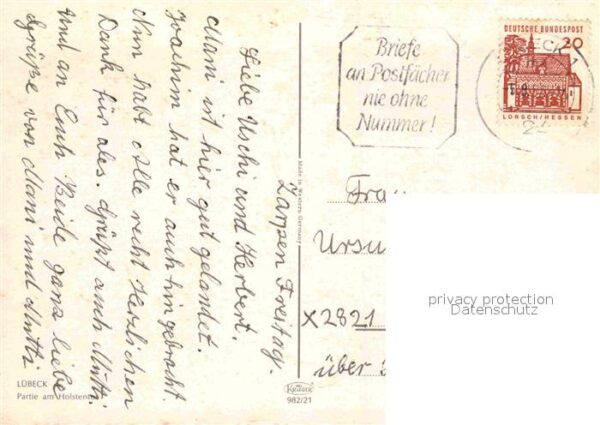 Zarpen Freitag.
Liebe Uschi und Herbert.
Mani ist hier gut gelandet.
Joachim hat er auch hin gebracht.
Nun habt Alle recht Herzlichen
Dank für ales. Grüßt auch Mutti.
Und an Euch Beide ganz liebe
Grüße von Mani und Mutti
LÜBECK
Partie am Holstentor
Made in Western Germany
Krüger
982/21
Briefe
an Postfächer
nie ohne
Nummer!
DEUTSCHE BUNDESPOST
20
LORSCH/HESSEN
Fra
Ursu
X2821
über
privacy protection
Datenschutz